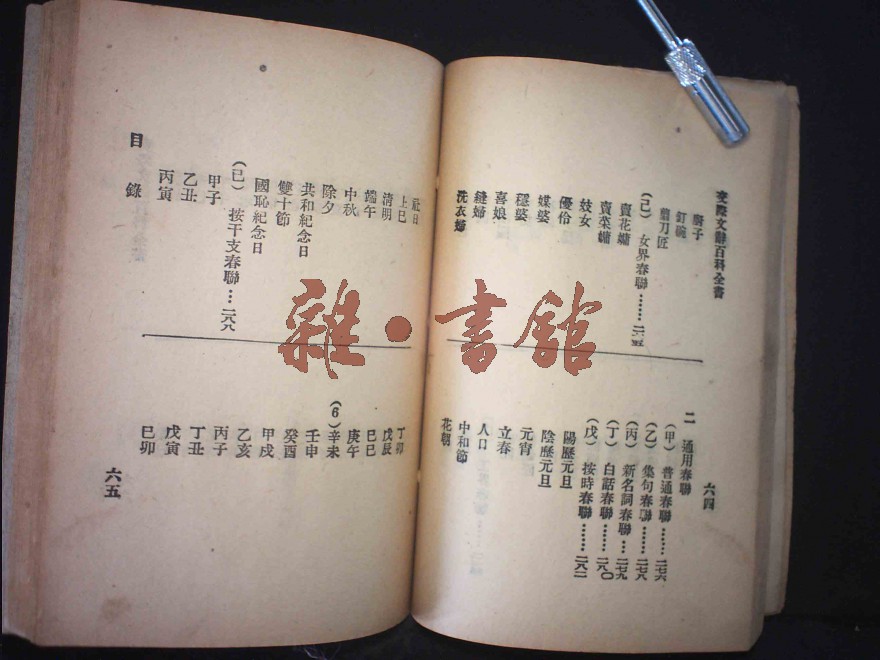 交際文辭百科全書
騎子
釘碗
剪刀匠
(己) 女界春聯……二六五
賣花嫗
賣菜嫗
妓女
優伶
媒婆
穩婆
喜娘
縫婦
洗衣婦
六四
二 通用春聯
(甲) 普通春聯……二七六
(乙) 集句春聯……二七八
(丙) 新名詞春聯…二七九
(丁) 白話春聯……二八〇
(戊) 按時春聯……二八二
陽歷元旦
陰歷元旦
元宵
立春
人日
中和節
花朝
社日
上巳
清明
端午
中秋
除夕
共和紀念日
雙十節
國恥紀念日
(己) 按干支春聯…二八八
甲子
乙丑
丙寅
目錄
丁卯
戊辰
己巳
庚午
(6)辛未
壬申
癸酉
甲戌
乙亥
丙子
丁丑
戊寅
巳卯
六五
雜·書館